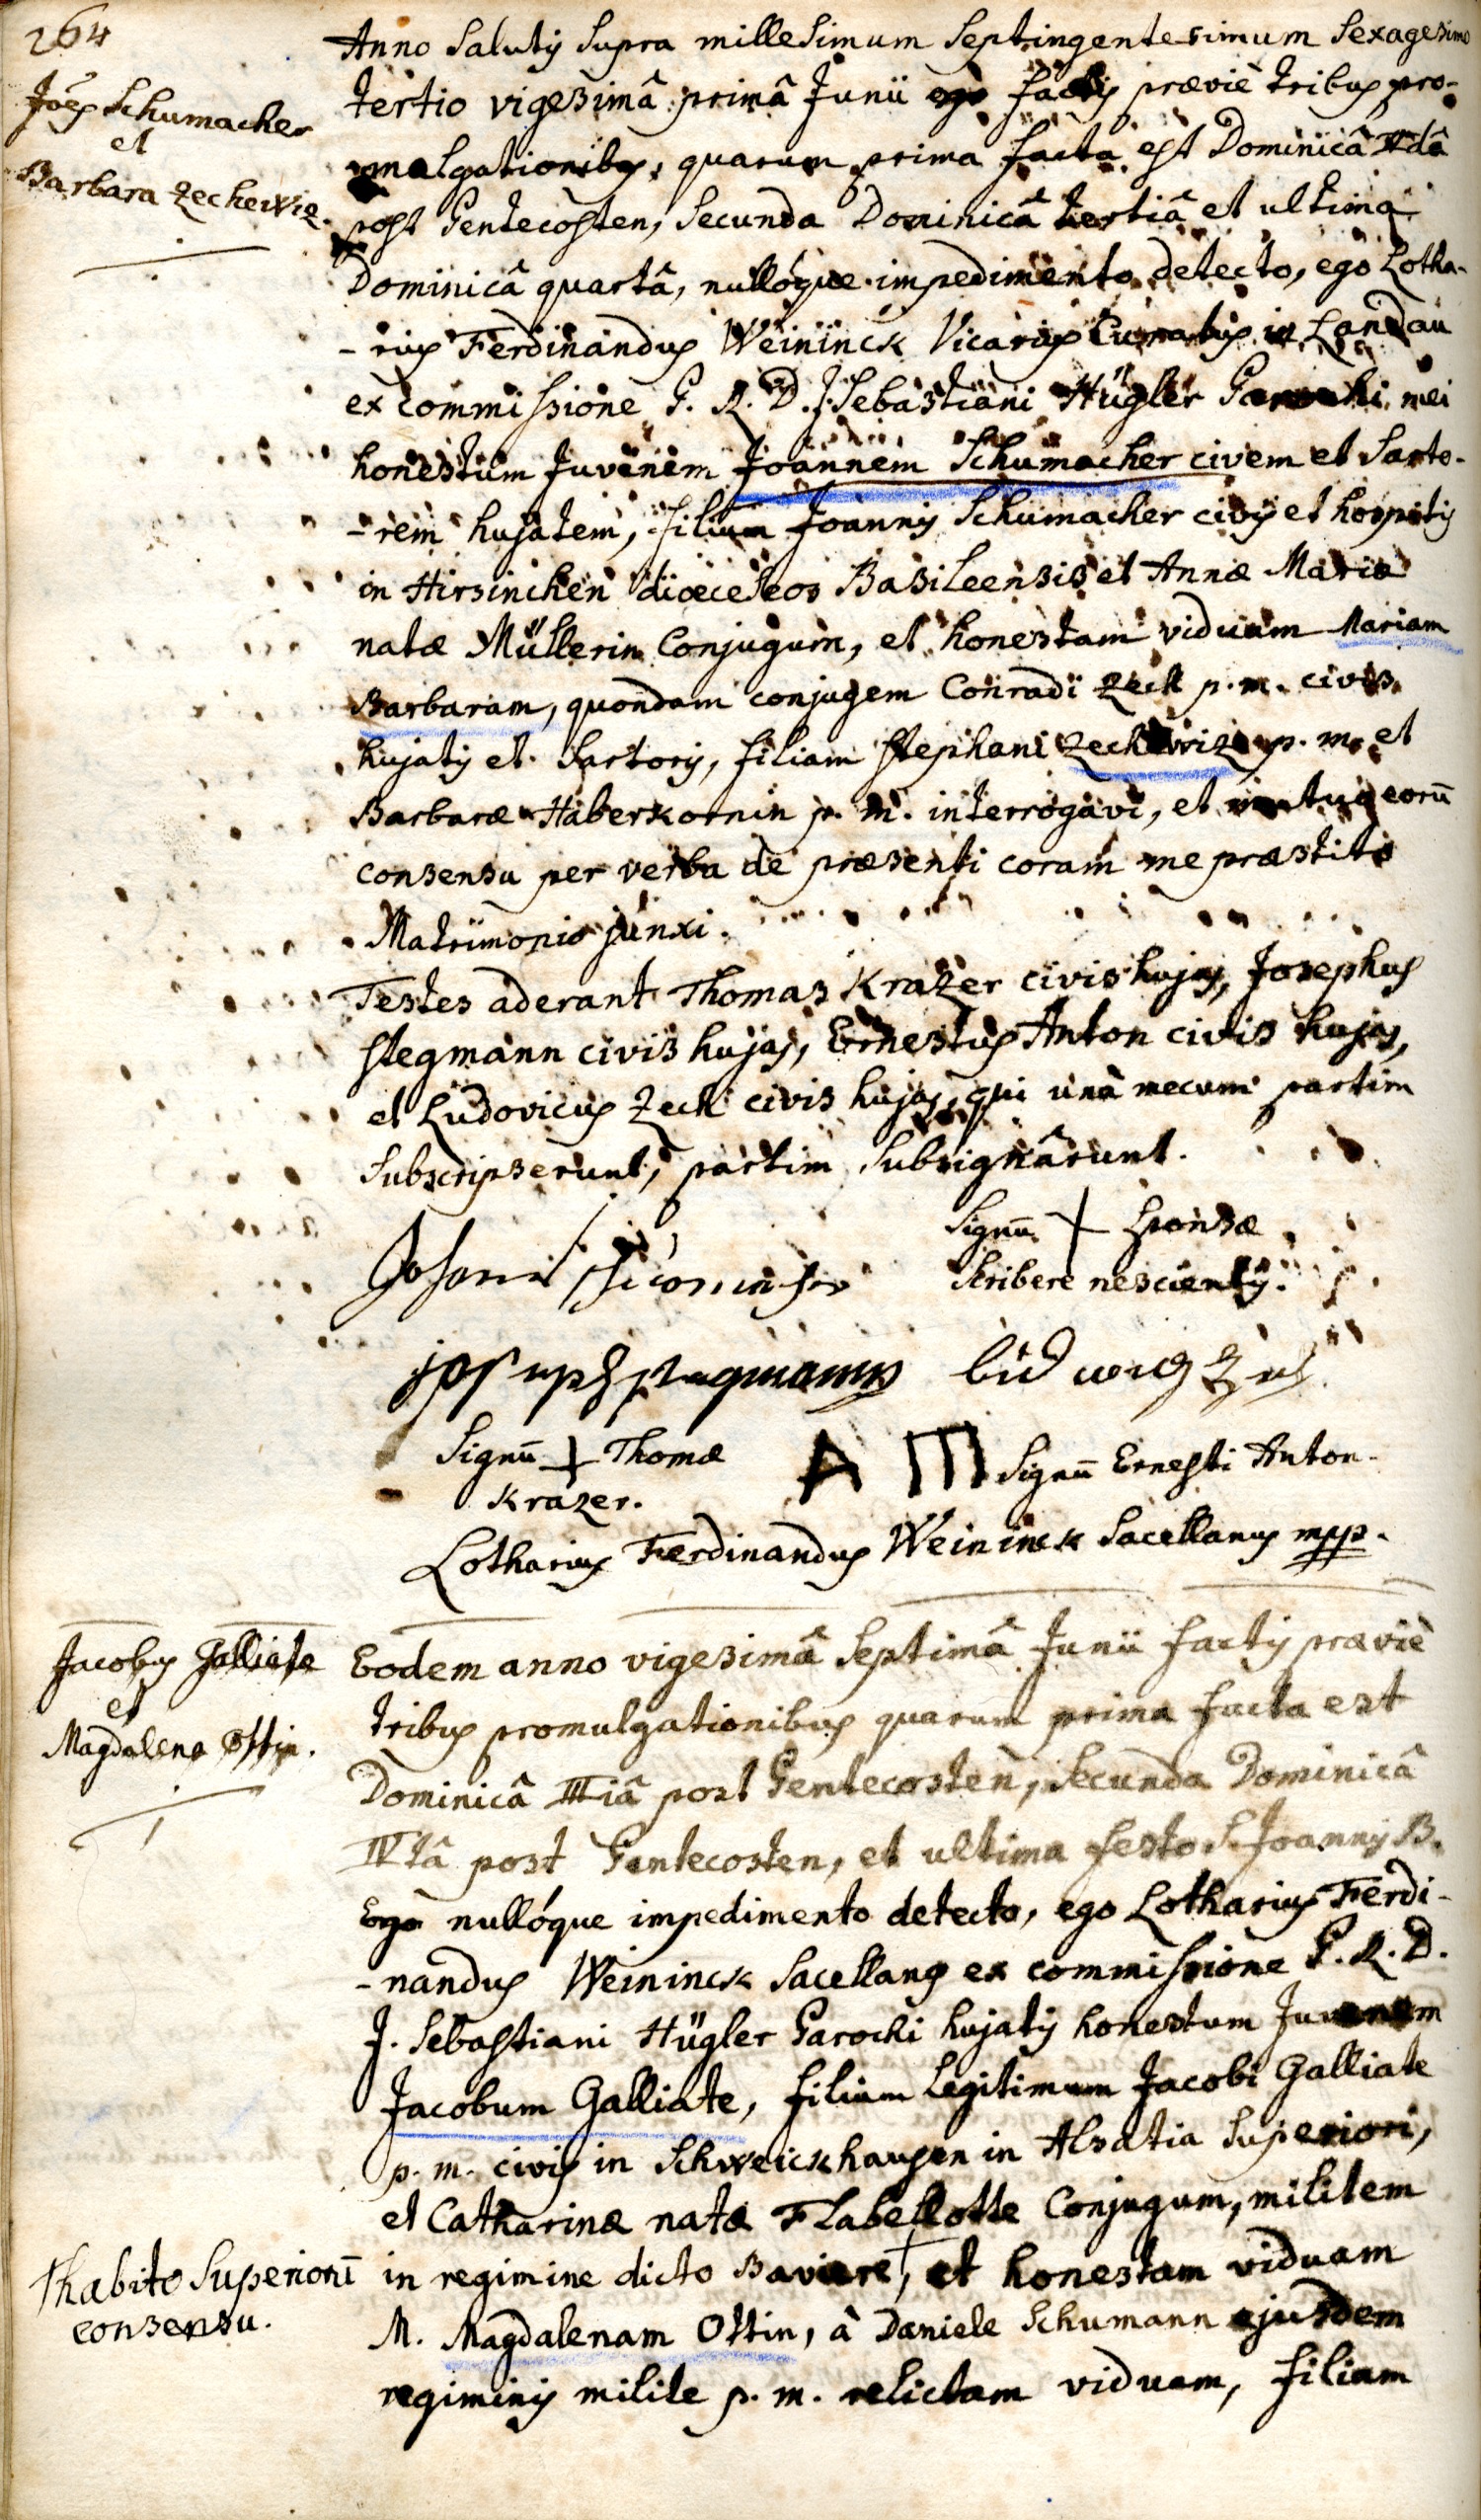 264
Joēs Schumacher
et
Barbara Zecherviz.
Anno Salutis supra millesimum septingentesimum sexagesimo
tertio vigesimâ primâ Junii factis præviè tribus pro-
mulgationibus, quarum prima facta est Dominicâ IIdâ
post Pentecosten, secunda Dominicâ tertiâ et ultima
Dominicâ quartâ, nullóque impedimento detecto, ego Lotha-
-rius Ferdinandus Weininck Vicarius Curatus in Landau
ex commissione P. R. D. J. Sebastiani Hügler Parochi mei
honestum Juvenem Joannem Schumacher civem et Sarto-
-rem hujatem, filium Joannis Schumacher civis et hospitis
in Hirsincken dioeceseos Basileensis et Annæ Mariæ
natæ Müllerin Conjugum, et honestam viduam Mariam
Barbaram, quondam conjugem Conradi Zeck p. m. civis
hujatis et Sartoris, filiam Stephani Zecherviz p. m. et
Barbaræ Haberkornin p. m. interrogavi, et mutuo eorū
consensu per verba de præsenti coram me præstito
Matrimonio junxi.
Testes aderant Thomas Krazer civis hujas, Josephus
Stegmann civis hujas, Ernestus Anton civis hujas,
et Ludovicus Zeck civis hujas, qui unà mecum partim
Subscripserunt, partim Subsignârunt.
Signū + Sponsæ
Scribere nescientis.
Johannes Schumacher
Joseph Stegmann Ludwig Zeck
Signū + Thomæ A m Signū Ernesti Anton.
Krazer.
Lotharius Ferdinandus Weininck Sacellanus mpp.
Jacobus Galliate
et
Magdalena Ottin.
Eodem anno vigesimâ septimâ Junii factis præviè
tribus promulgationibus quarum prima facta est
Dominicâ IIIiâ post Pentecosten, secunda Dominicâ
IVtâ post Pentecosten, et ultima festo S. Joannis B.
Ego nullóque impedimento detecto, ego Lotharius Ferdi-
-nandus Weininck Sacellanus ex commissione P. R. D.
J. Sebastiani Hügler Parochi hujatis honestum Juvenem
Jacobum Galliate, filium legitimum Jacobi Galliate
p. m. civis in Schweickhausen in Alsatia Superiori,
et Catharinæ natæ Flabellotte Conjugum, militem
in regimine dicto Baviere, † et honestam viduam
† habito Superiorū
consensu.
M. Magdalenam Ottin, à Daniele Schumann ejusdem
regiminis milite p. m. relictam viduam, filiam